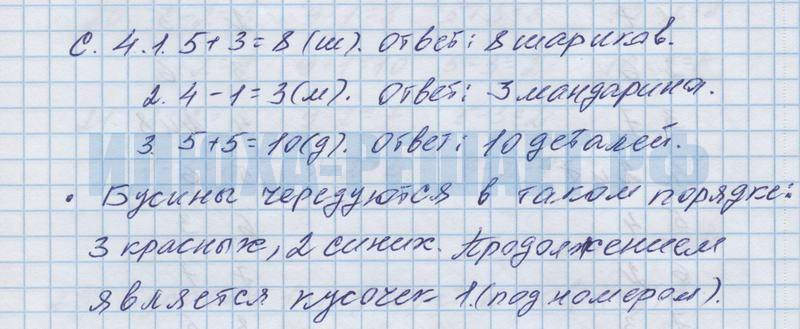 С. 4. 1. 5+3=8 (ш). Ответ: 8 шариков.
2. 4-1=3(м). Ответ: 3 мандарина.
3. 5+5=10(д). Ответ: 10 деталей.
• Бусины чередуются в таком порядке:
3 красных, 2 синих. Продолжением
является кусочек 1.(под номером).